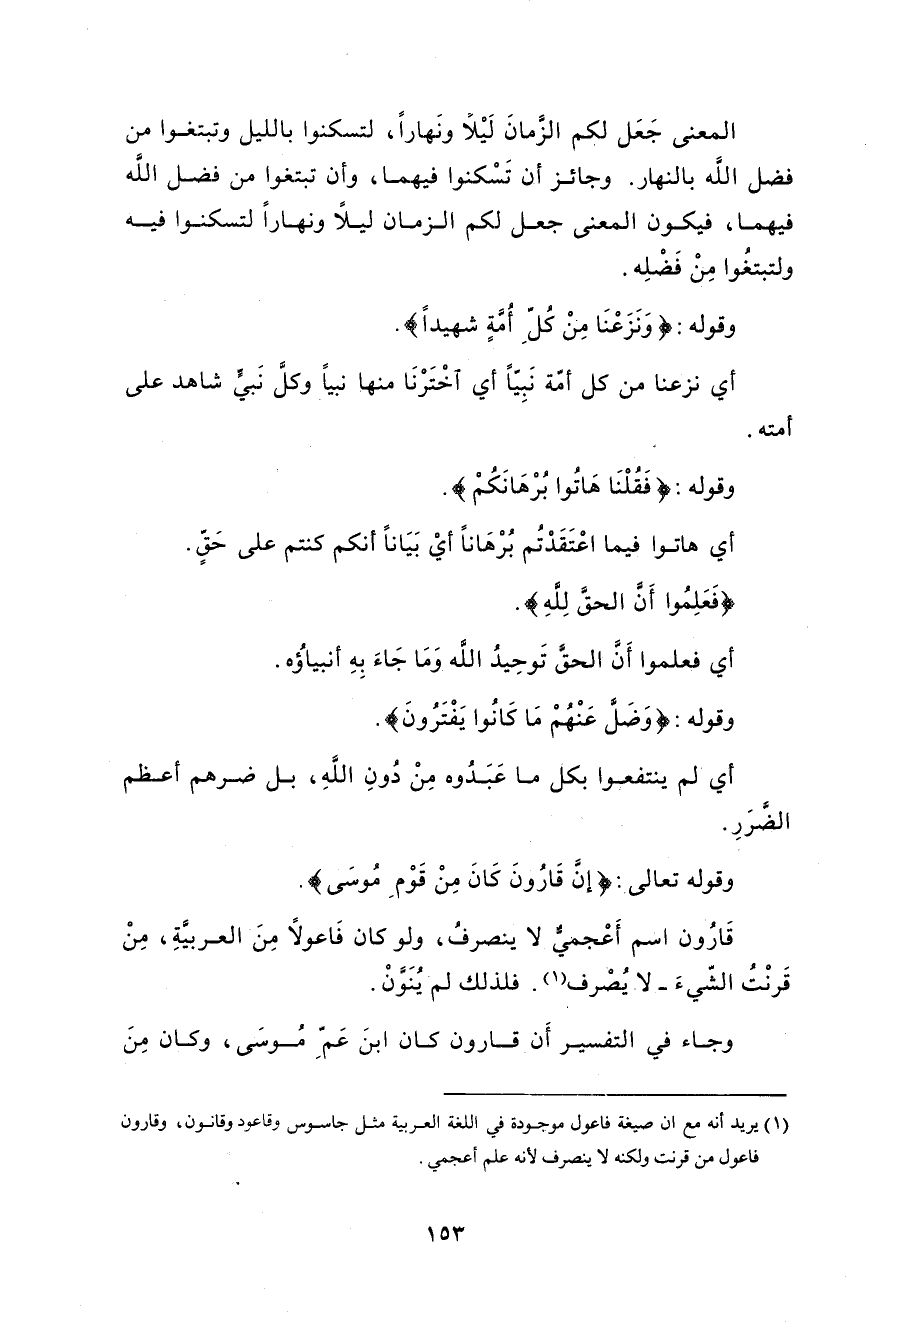 المعنى جَعَل لكم الزَّمانَ لَيْلًا ونَهاراً، لتسكنوا بالليل وتبتغوا من
فضل اللَّه بالنهار. وجائز أن تَسْكنوا فيهما، وأن تبتغوا من فضل اللَّه
فيهما، فيكون المعنى جعل لكم الزمان ليلًا ونهاراً لتسكنوا فيه
ولتبتغُوا مِنْ فَضْلِه .
وقوله : ﴿وَنَزَعْنَا مِنْ كُلِّ أُمَّةٍ شهيداً﴾.
أي نزعنا من كل أمّة نَبِيّاً أي آخْتَرْنَا منها نبياً وكلَّ نَبيٍّ شاهد على
أمته .
وقوله : ﴿فَقُلْنَا هَاتُوا بُرْهَانَكُمْ ﴾ .
أي هاتوا فيما اعْتَقَدْتُم بُرْهَاناً أيْ بَيَاناً أنكم كنتم على حَقٍّ .
﴿فَعَلِمُوا أَنَّ الحقَّ لِلَّهِ﴾ .
أي فعلموا أَنَّ الحقَّ تَوحِيدُ اللَّه وَمَا جَاءَ بِهِ أنبياؤُه .
وقوله : ﴿وَضَلَّ عَنْهُمْ مَا كَانُوا يَفْتَرُونَ﴾ .
أي لم ينتفعوا بكل ما عَبَدُوه مِنْ دُونِ اللَّهِ، بل ضرهم أعظم
الضَّرَرِ .
وقوله تعالى : ﴿إنَّ قَارُونَ كَانَ مِنْ قَوْمِ مُوسَى﴾ .
قَارُون اسم أَعْجميٌّ لا ينصرفُ، ولو كان فَاعولًا مِنَ العربيَّةِ، مِنْ
قَرنْتُ الشّيءَ ـ لا يُصْرف(١) . فلذلك لم يُنَوَّنْ .
وجاء في التفسير أَن قارون كان ابنَ عَمِّ مُوسَى، وكان مِنَ
(١) يريد أنه مع ان صيغة فاعول موجودة في اللغة العربية مثل جاسوس وقاعود وقانون، وقارون
فاعول من قرنت ولكنه لا ينصرف لأنه علم أعجمي .
١٥٣